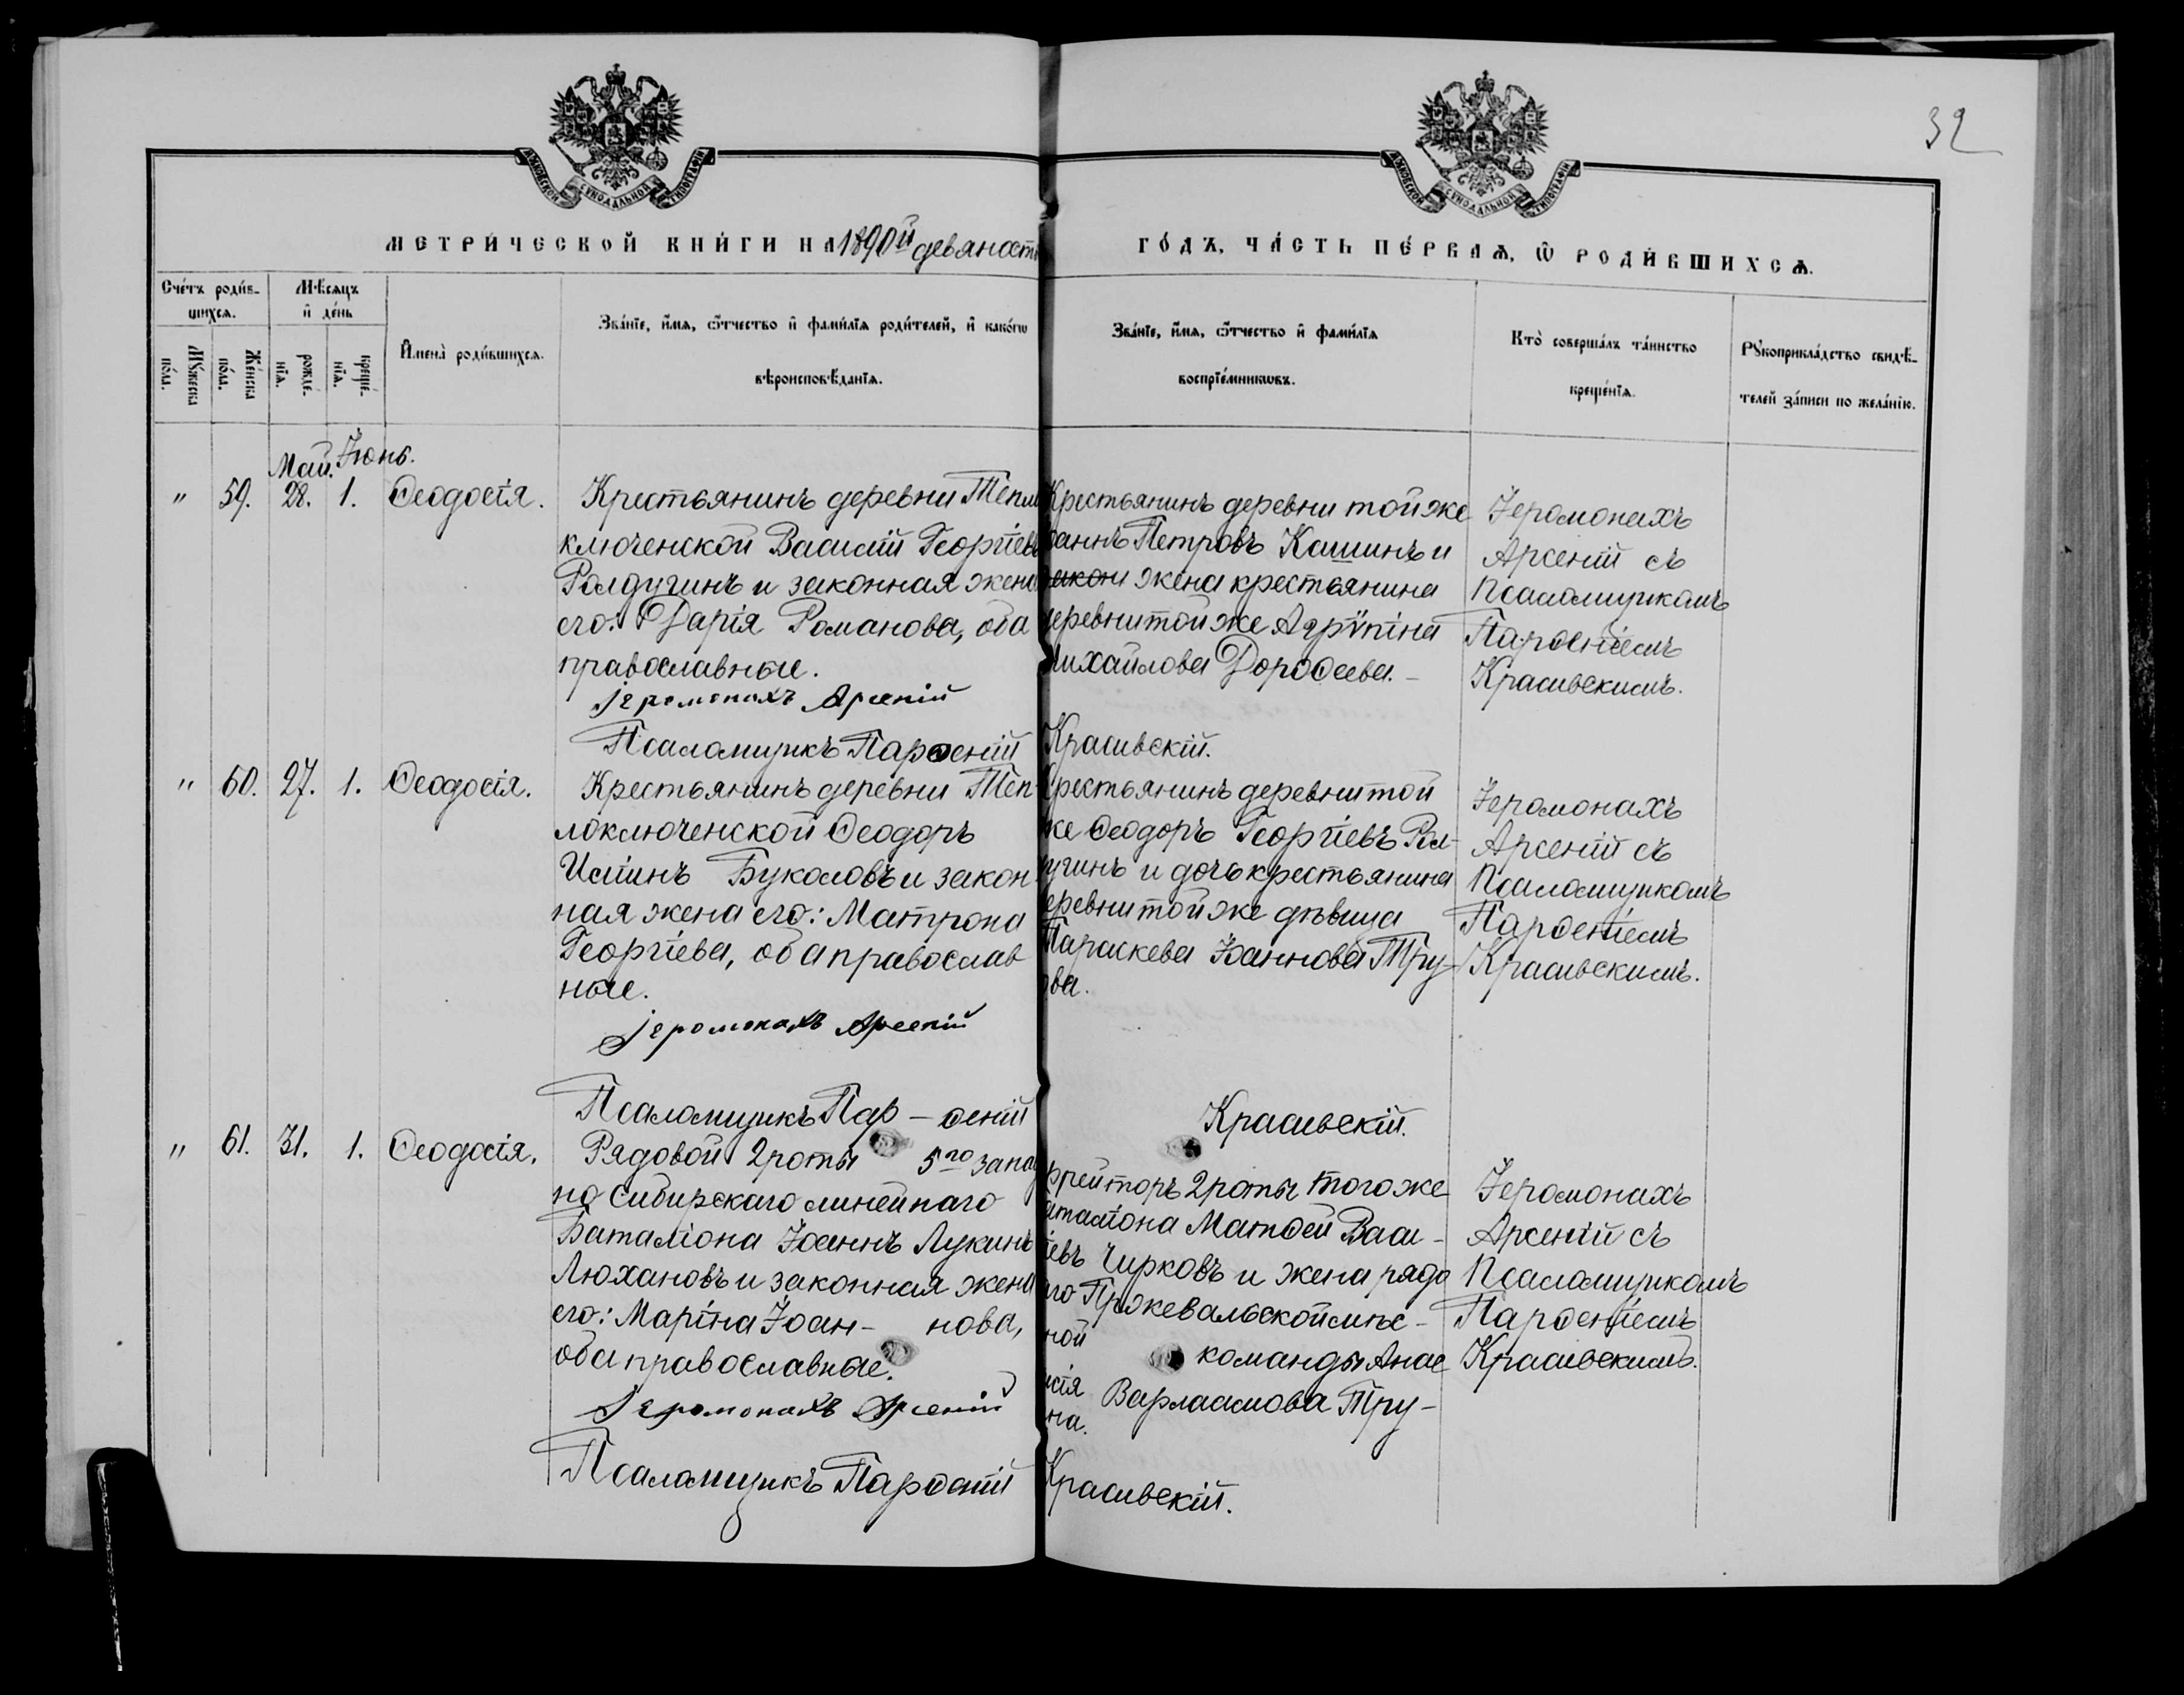 32
МОСКОВСКОЙ СѴНОДАЛЬНОЙ ТИПОГРАФІИ
МОСКОВСКОЙ СѴНОДАЛЬНОЙ ТИПОГРАФІИ
МЕТРИ́ЧЕСКОЙ КНИ́ГИ НА 1890й девяност
ГО́ДЪ, ЧА́СТЬ ПЕ́РВАѦ, Ѡ҆ РОДИ́ВШИХСѦ.
Сче́тъ роди́в-
шихсѧ.
Мѣсѧцъ
и҆ де́нь
Мꙋ́жеска
по́ла.
Же́нска
по́ла.
рожде́-
нїѧ.
креще́-
нїѧ.
И҆мена̀ роди́вшихсѧ.
Зва́нїе, и҆́мѧ, ѻ҆́тчество и҆ фами́лїѧ роди́телей, и҆ како́гѡ
вѣроисповѣ́данїѧ.
Зва́нїе, и҆́мѧ, ѻ҆́тчество и҆ фами́лїѧ
воспрїе́мникѡвъ.
Кто̀ соверша́лъ та́инство
креще́нїѧ.
Рꙋкоприкла́дство свидѣ́-
телей за́писи по жела́нїю.
Май. Іюнь.
" 59. 28. 1. Ѳеодосія.
Крестьянинъ деревни Тепло
ключенской Василій Георгіевъ
Ралдугинъ и законная жена
его: Дарія Романова, оба
православные.
Іеромонахъ Арсеній
Псаломщикъ Парѳеній
Крестьянинъ деревни той же
оаннъ Петровъ Кашинъ и
закон жена крестьянина
деревни той же Агрѵпіна
Михайлова Дороѳеева.
Красивскій.
Іеромонахъ
Арсеній съ
Псаломщикомъ
Парѳеніемъ
Красивскимъ.
" 60. 27. 1. Ѳеодосія.
Крестьянинъ деревни Теп-
лоключенской Ѳеодоръ
Исіинъ Букаловъ и закон-
ная жена его: Матрона
Георгіева, оба православ
ные.
Іеромонахъ Арсеній
Псаломщикъ Пар-ѳеній
Крестьянинъ деревни той
же Ѳеодоръ Георгіевъ Рал-
угинъ и дочь крестьянина
деревни той же дѣвица
Параскева Іоаннова Тру-
ова.
Красивскій.
Іеромонахъ
Арсеній съ
Псаломщикомъ
Парѳеніемъ
Красивскимъ.
" 61. 31. 1. Ѳеодосія.
Рядовой 2 роты 5го запад
но Сибирскаго линейнаго
Баталіона Іоаннъ Лукинъ
Люхановъ и законная жена
его: Маріна Іоан- нова,
оба православные.
Іеромонахъ Арсеній
Псаломщикъ Парѳеній
фрейторъ 2 роты того же
аталіона Матѳей Васи-
іевъ Чирковъ и жена рядо
го Пржевальской мѣс-
ной
команды Анас
сія Варлаамова Тру-
на.
Красивскій.
Іеромонахъ
Арсеній съ
Псаломщикомъ
Парѳеніемъ
Красивскимъ.